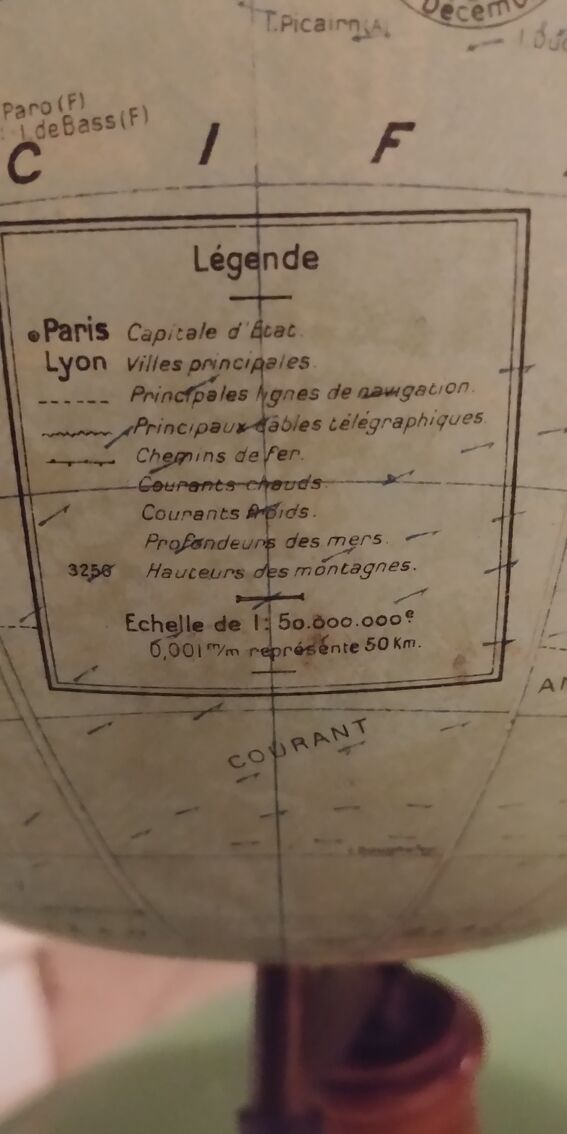 T.Picairn(A)
Décem
Paro(F)
I.deBass(F)
C I F
Légende
Paris Capitale d'État.
Lyon Villes principales.
Principales lignes de navigation.
Principaux câbles télégraphiques.
Chemins de fer.
Courants chauds.
Courants froids.
Profondeurs des mers.
3250 Hauteurs des montagnes.
Echelle de 1:50.000.000e
0,001 m/m représente 50 Km.
COURANT